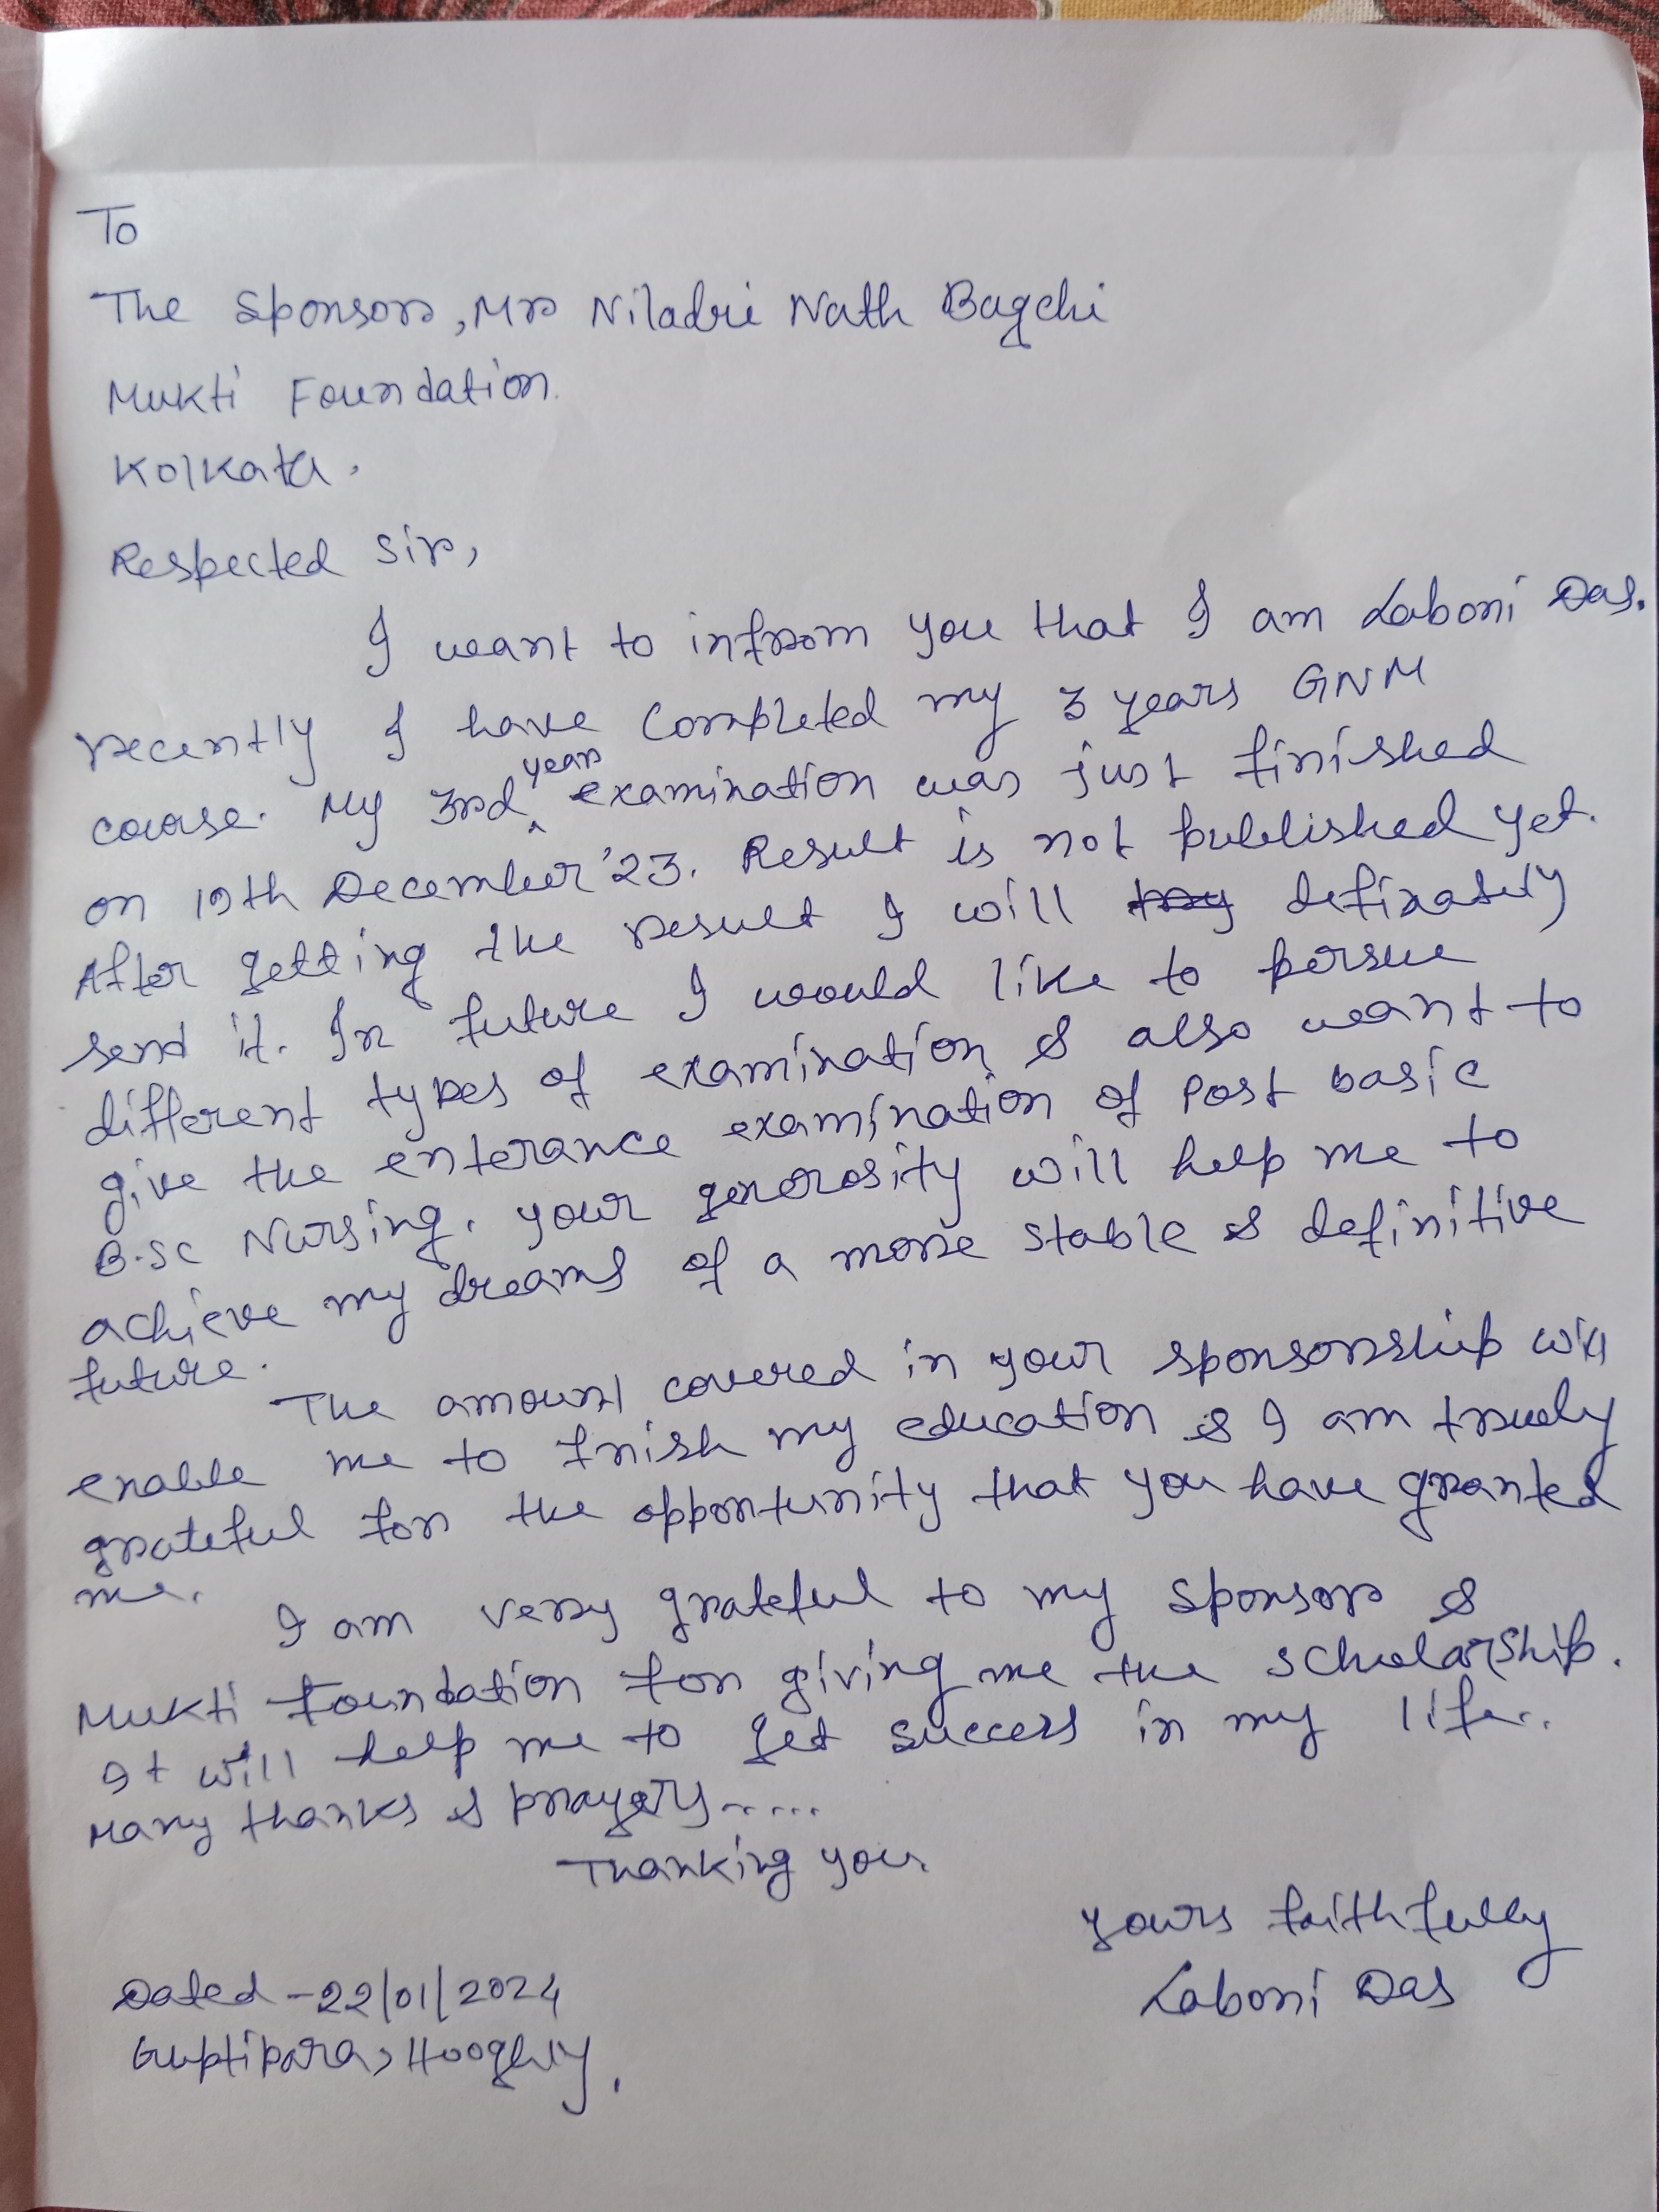 To
The Sponsor, Mr Niladri Nath Bagchi
Mukti Foundation.
Kolkata.
Respected Sir,
I want to infrom you that I am Laboni Das.
recently I have completed my 3 years GNM
course. My 3rd year examination was just finished
on 19th December '23. Result is not published yet.
After getting the result I will definately
send it. In future I would like to persue
different types of examination & also want to
give the enterance examination of Post basic
B.Sc Nursing. your generosity will help me to
achieve my dreams of a more stable & definitive
future.
The amount covered in your sponsorship will
enable me to finish my education & I am truely
grateful for the opportunity that you have granted
me.
I am very grateful to my sponsor &
Mukti Foundation for giving me the scholarship.
It will help me to get success in my life..
Many thanks & prayers.....
Thanking you
yours faithfully
Laboni Das
Dated - 22/01/2024
Guptipara, Hooghly.